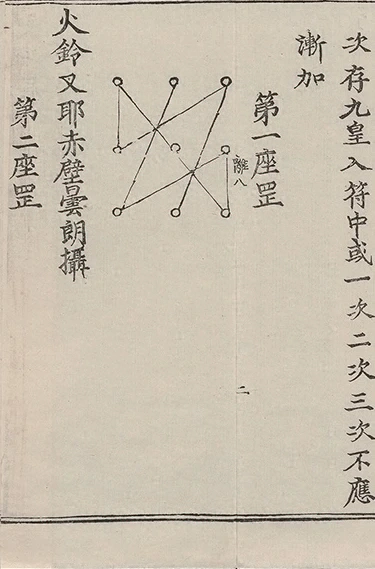 次存九皇入符中或一次二次三次不應
漸加
第一座罡
離八
二
火鈴又耶赤壁曇朗攝
第二座罡